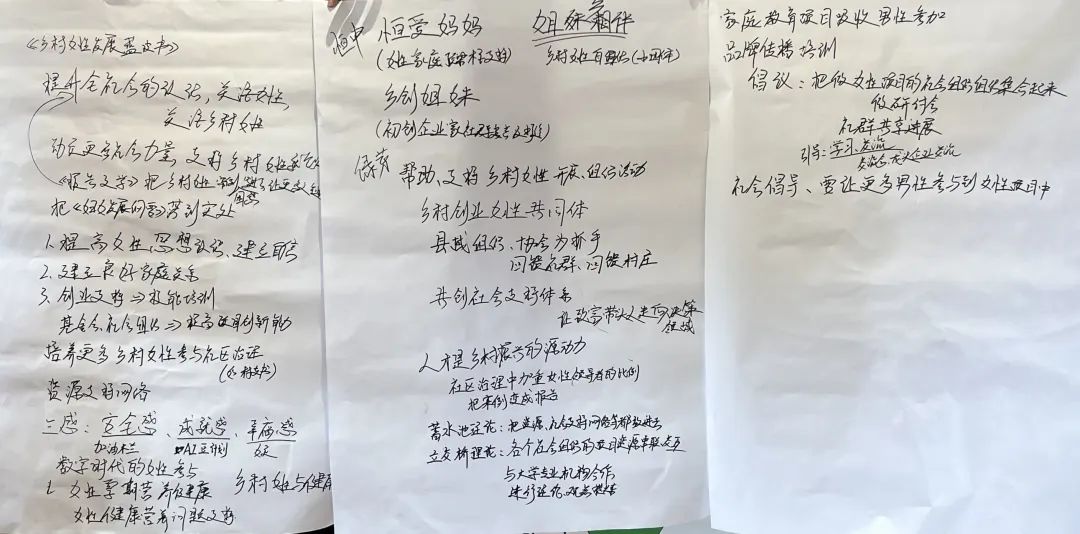 《乡村女性发展蓝皮书》
提升全社会的认识,关注女性,
关注乡村女性
动员更多社会力量 支持乡村女性
《报告文学》把乡村女性
把《妇女发展问题》落到实处
1. 提高女性思想认识、建立自信
2. 建立良好家庭关系
3. 创业支持⇒技能培训
基金会、社会组织⇒提高项目创新能力
培养更多乡村女性参与社区治理
资源支持网络
三感:安全感、成就感、幸福感
加油木兰 AI豆计划
数字时代的女性参与
女性孕期营养健康 乡村女性与健康
女性健康营养问题支持
恒爱妈妈
(女性家庭)
乡创姐妹
(初创企业家)
帮助、支持乡村女性开展、组织活动
姐妹相伴
乡村女性自组织(小团体)
乡村创业女性共同体
县域组织、协会为抓手
回馈社群、回馈村庄
共创社会支持体系
让致富带头人走向决策
领域
人才是乡村振兴的源动力
社区治理中加重女性领导者的比例
把案例变成报告
蓄水池理论:把资源、社会支持网络等都放进去
立交桥理论:各个社会组织的项目资源串联
与大学专业机构合作
进行理论、
家庭教育项目吸收男性参加
品牌传播培训
倡议:把做女性项目的社会组织组织集合起来
做研讨会
社群共享进展
引导:学习、交流
社会倡导、要让更多男性参与到女性项目中